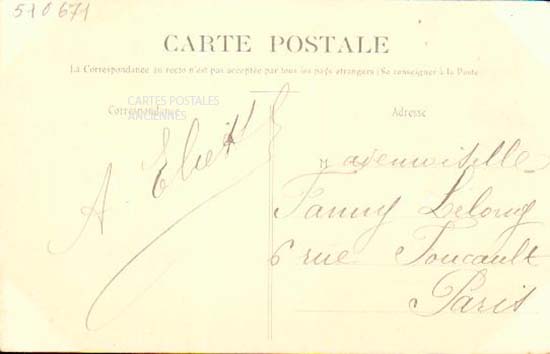 510671
CARTE POSTALE
La Correspondance au recto n'est pas acceptée par tous les pays étrangers (Se renseigner à la Poste)
CARTES POSTALES
ANCIENNES
Correspondance
Adresse
A
Mademoiselle
Fanny Lelong
6 rue Foucault
Paris